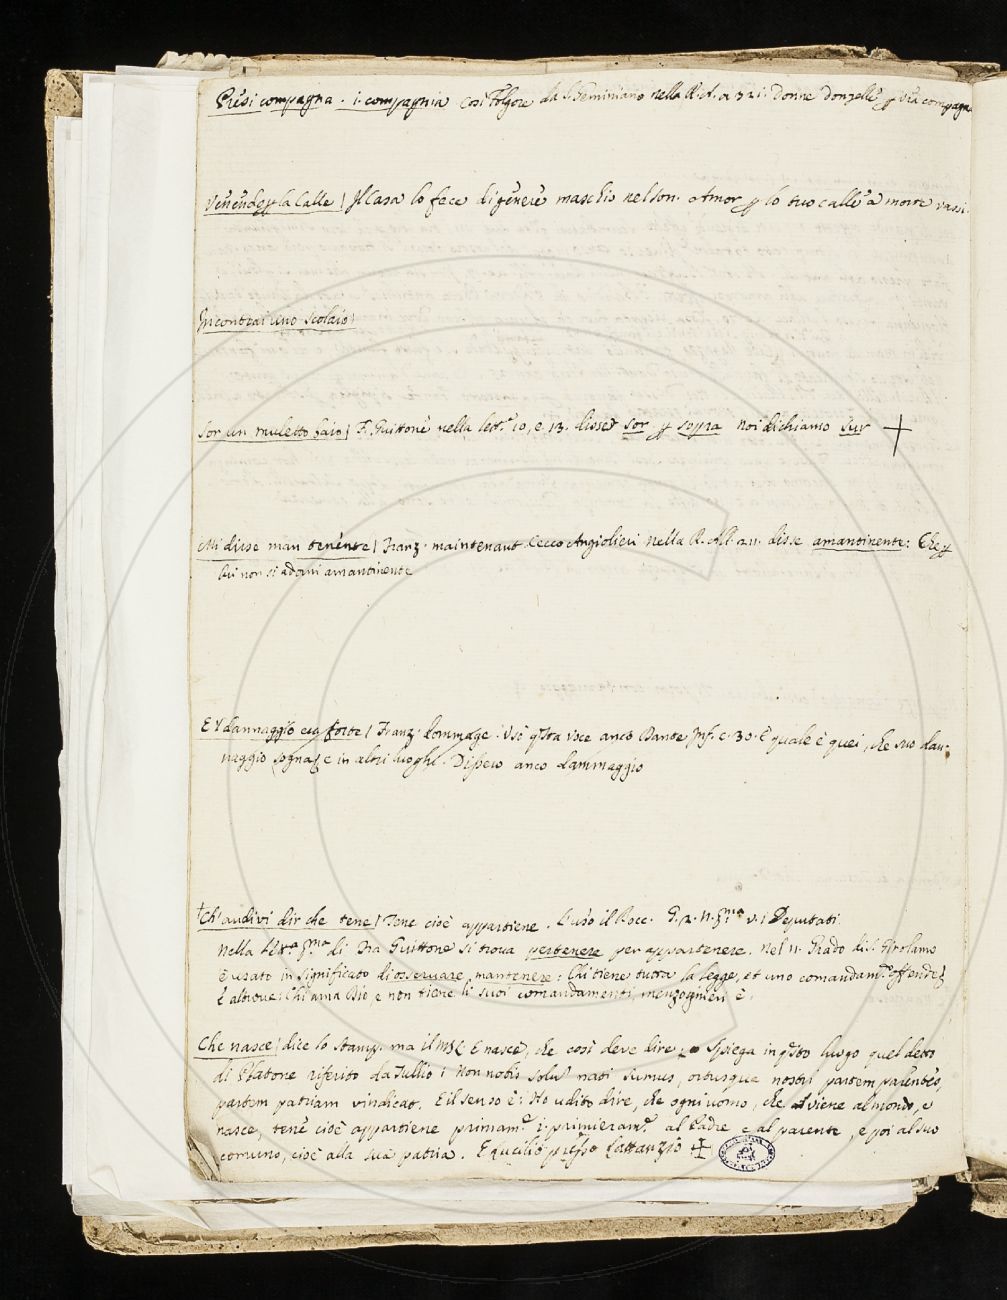 Presi compagna. i. compagnia così Folgore da S. Geminiano nella R. A. a 321. Donne donzelle per vra compagn
Venendo per la Calle / Il Casa lo fece di genere maschio nel son. Amor per lo tuo calle a morte vassi.
Incontrai uno scolaio /
Sor un muletto baio / F. Guittone nella lett. 10, e 13. disse sor per sopra noi dichiamo sur
Mi disse man tenente / Franz. maintenant Cecco Angiolieri nella R. All. 211. disse amantinente: Che per
lui non si adori amantinente
E 'l dannaggio e la forte / Franz. dommage. Usò qsta voce anco Dante Inf. c. 30. E quale è quei, che suo dan-
naggio sogna / e in altri luoghi. Dissero anco dammaggio
Ch' audivi dir che tene / Tene cioè appartiene. l'usò il Bocc. G. 2. N. pma v. i Deputati
nella lra pma di Fra Guittone si trova pertenere per appartenere. Nel 11. Grado di S. Girolamo
è usato in significato di osservare, mantenere: Chi tiene tutta la legge, et uno comandam. offende,
E altrove: Chi ama Dio, e non tiene li suoi comandamenti, menzogniere è.
Che nasce / dice lo stamp. ma il MS. E nasce, che così deve dire, Spiega in qsto luogo quel detto
di Platone riferito da Tullio: Non nobis solum nati sumus, ortusque nostri partem parentes,
partem patriam vindicat. E il senso è: Ho udito dire, che ogni uomo, che viene al mondo, e
nasce, tene cioè appartiene primam. i. primieram. al Padre e al parente, e poi al suo
comuno, cioè alla sua patria. E Lucilio presso Lattanzio